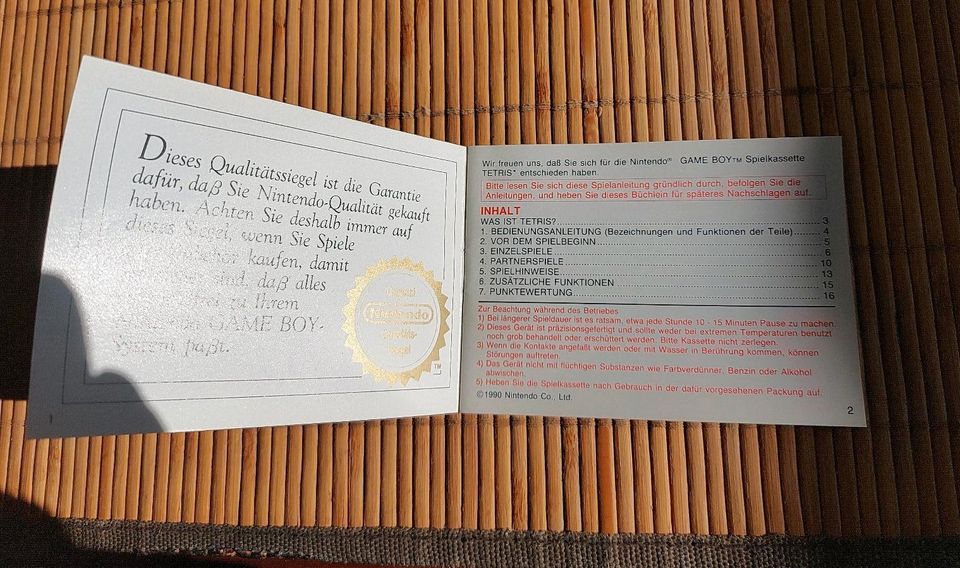 Dieses Qualitätssiegel ist die Garantie
dafür, daß Sie Nintendo-Qualität gekauft
haben. Achten Sie deshalb immer auf
dieses Siegel, wenn Sie Spiele
kaufen, damit
sind, daß alles
zu Ihrem
GAME BOY-
System paßt.
Nintendo
TM
1
Wir freuen uns, daß Sie sich für die Nintendo® GAME BOY™ Spielkassette
TETRIS* entschieden haben.
Bitte lesen Sie sich diese Spielanleitung gründlich durch, befolgen Sie die
Anleitungen, und heben Sie dieses Büchlein für späteres Nachschlagen auf.
INHALT
WAS IST TETRIS?........ 3
1. BEDIENUNGSANLEITUNG (Bezeichnungen und Funktionen der Teile)........ 4
2. VOR DEM SPIELBEGINN........ 5
3. EINZELSPIELE........ 6
4. PARTNERSPIELE........ 10
5. SPIELHINWEISE........ 13
6. ZUSÄTZLICHE FUNKTIONEN........ 15
7. PUNKTEWERTUNG........ 16
Zur Beachtung während des Betriebes
1) Bei längerer Spieldauer ist es ratsam, etwa jede Stunde 10 - 15 Minuten Pause zu machen.
2) Dieses Gerät ist präzisionsgefertigt und sollte weder bei extremen Temperaturen benutzt
noch grob behandelt oder erschüttert werden. Bitte Kassette nicht zerlegen.
3) Wenn die Kontakte angefaßt werden oder mit Wasser in Berührung kommen, können
Störungen auftreten.
4) Das Gerät nicht mit flüchtigen Substanzen wie Farbverdünner, Benzin oder Alkohol
abwischen.
5) Heben Sie die Spielkassette nach Gebrauch in der dafür vorgesehenen Packung auf.
©1990 Nintendo Co., Ltd.
2